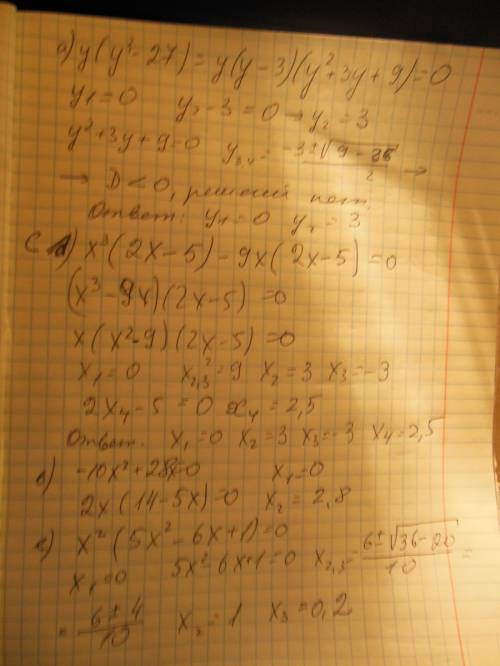 а) y(y³ - 27) = y(y - 3)(y² + 3y + 9) = 0
y1 = 0 y2 - 3 = 0 → y2 = 3
y² + 3y + 9 = 0 y3,4 = -3 ± √9 - 36 / 2 →
→ D < 0, решений нет.
Ответ: y1 = 0 y2 = 3
С) x³(2x - 5) - 9x(2x - 5) = 0
(x³ - 9x)(2x - 5) = 0
x(x² - 9)(2x - 5) = 0
x1 = 0 x²2,3 = 9 x2 = 3 x3 = -3
2x4 - 5 = 0 x4 = 2,5
Ответ. x1 = 0 x2 = 3 x3 = -3 x4 = 2,5
в) -10x² + 28x = 0 x1 = 0
2x(14 - 5x) = 0 x2 = 2,8
е) x²(5x² - 6x + 1) = 0
x1 = 0 5x² - 6x + 1 = 0 x2,3 = 6 ± √36 - 20 / 10 =
= 6 ± 4 / 10 x2 = 1 x3 = 0,2